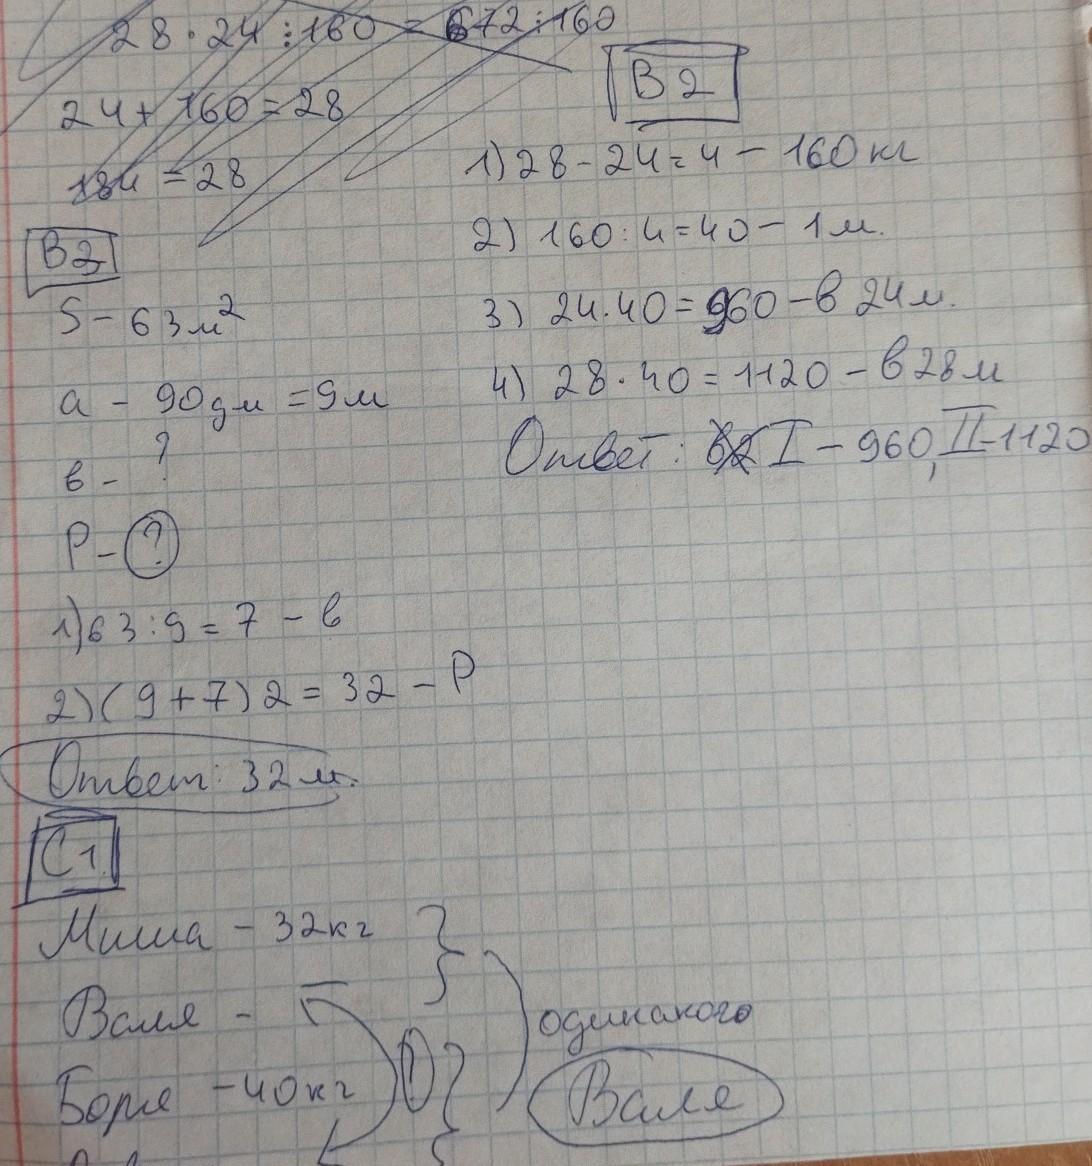 28 · 24 : 160 = 672 : 160
24 + 160 = 28
184 = 28
В2
1) 28 - 24 = 4 - 160 кг
2) 160 : 4 = 40 - 1 м.
3) 24 · 40 = 960 - в 24 м.
4) 28 · 40 = 1120 - в 28 м
Ответ: I - 960, II - 1120
В3
S - 63 м²
a - 90 дм = 9 м
в - ?
P - ?
1) 63 : 9 = 7 - в
2) (9 + 7) 2 = 32 - P
Ответ: 32 м.
С1
Миша - 32 кг
Валя -
Боря - 40 кг
одинакого
Валя